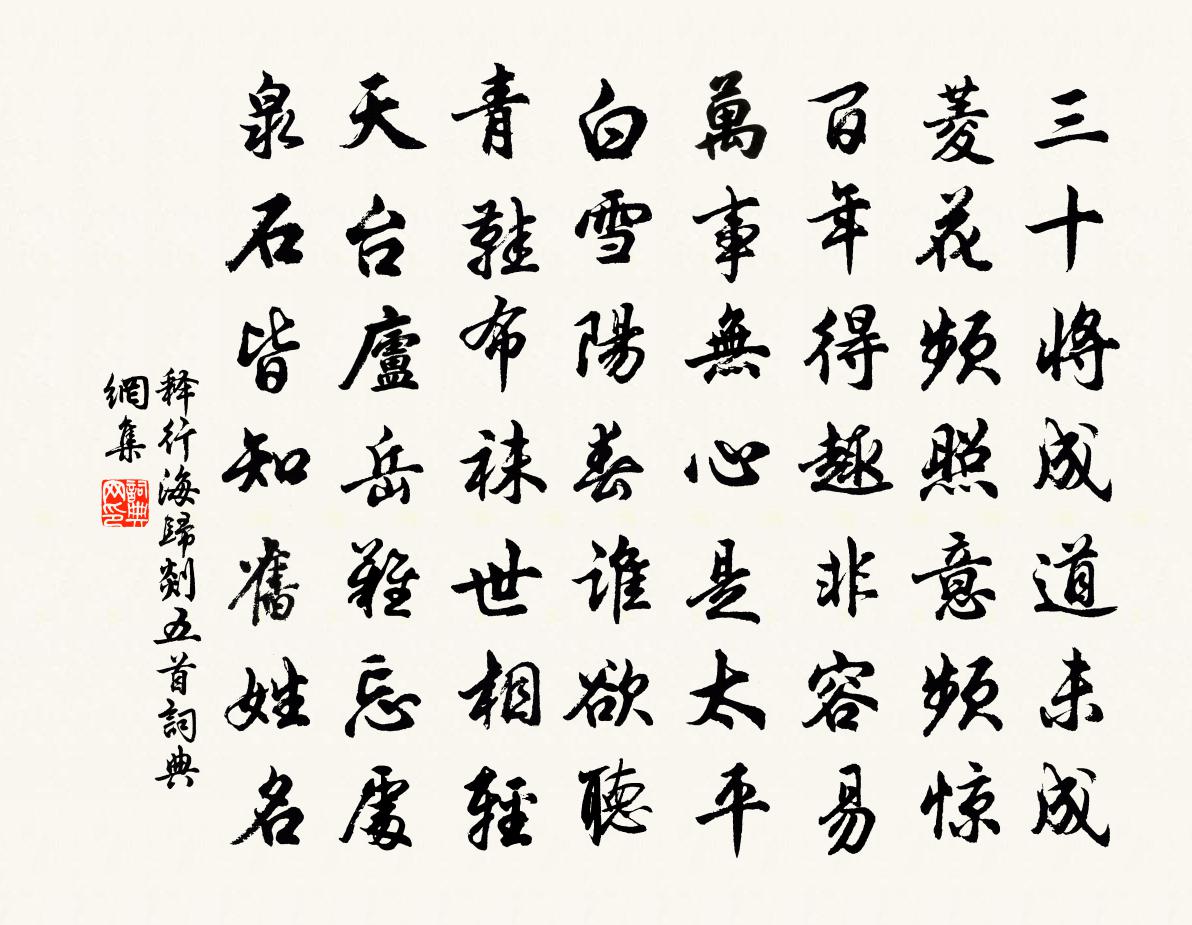 三十將成道未成
菱花頻照意頻惊
百年得趣非容易
萬事無心是太平
白雪陽春誰欲聽
青鞋布袜世相輕
天台廬岳難忘處
泉石皆知舊姓名
释行海歸剡五首詞典
網集
詞典
网印